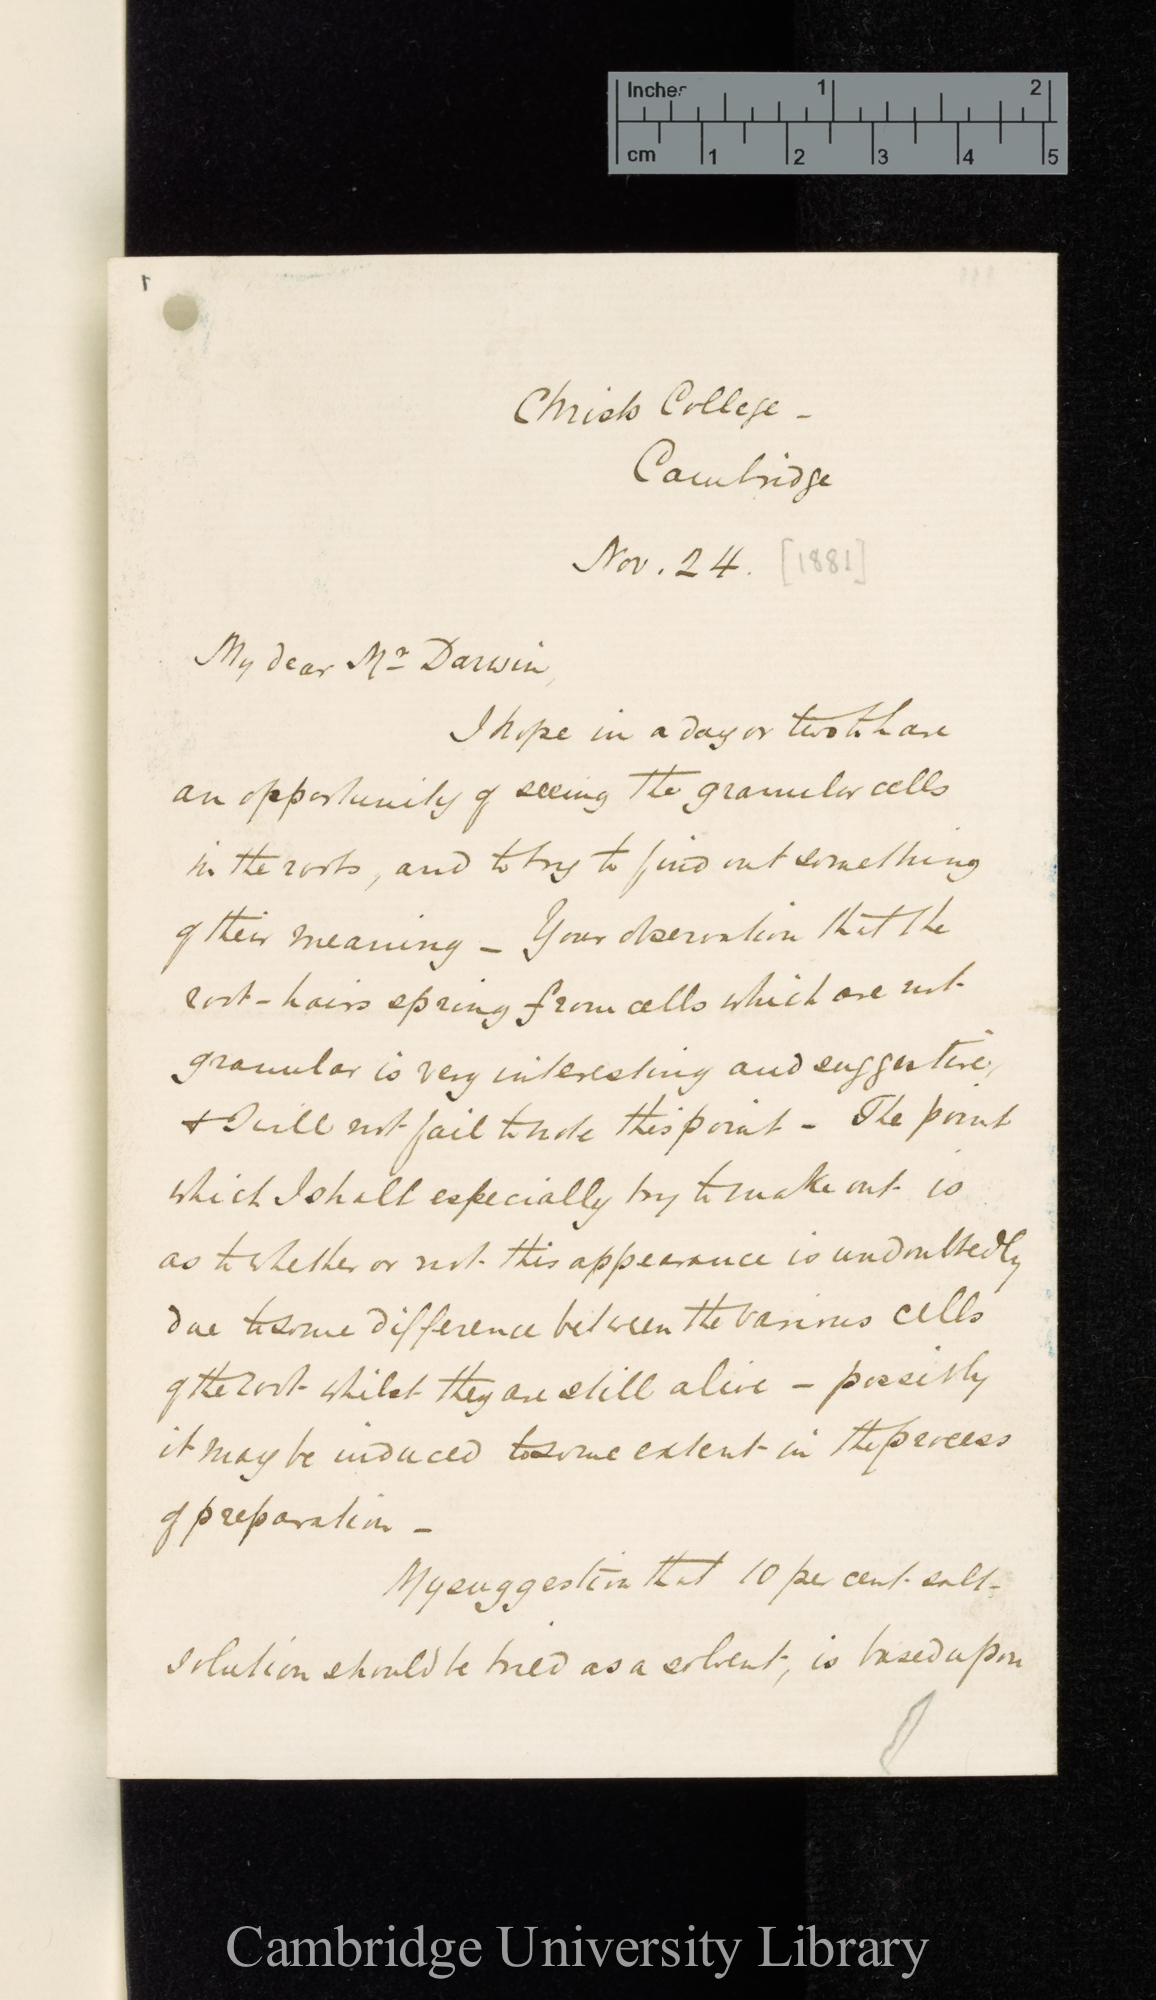 Inches 1 2
cm 1 2 3 4 5
1
Christs College –
Cambridge
Nov. 24. [1881]
My dear Mr Darwin,
I hope in a day or two to have
an opportunity of seeing the granular cells
in the roots, and to try to find out something
of their meaning – Your observation that the
root-hairs spring from cells which are not
granular is very interesting and suggestive,
& I will not fail to note this point – The point
which I shall especially try to make out is
as to whether or not this appearance is undoubtedly
due to some difference between the various cells
of the root whilst they are still alive – possibly
it may be induced to some extent in the process
of preparation –
My suggestion that 10 per cent salt-
solution should be tried as a solvent, is based upon
Cambridge University Library